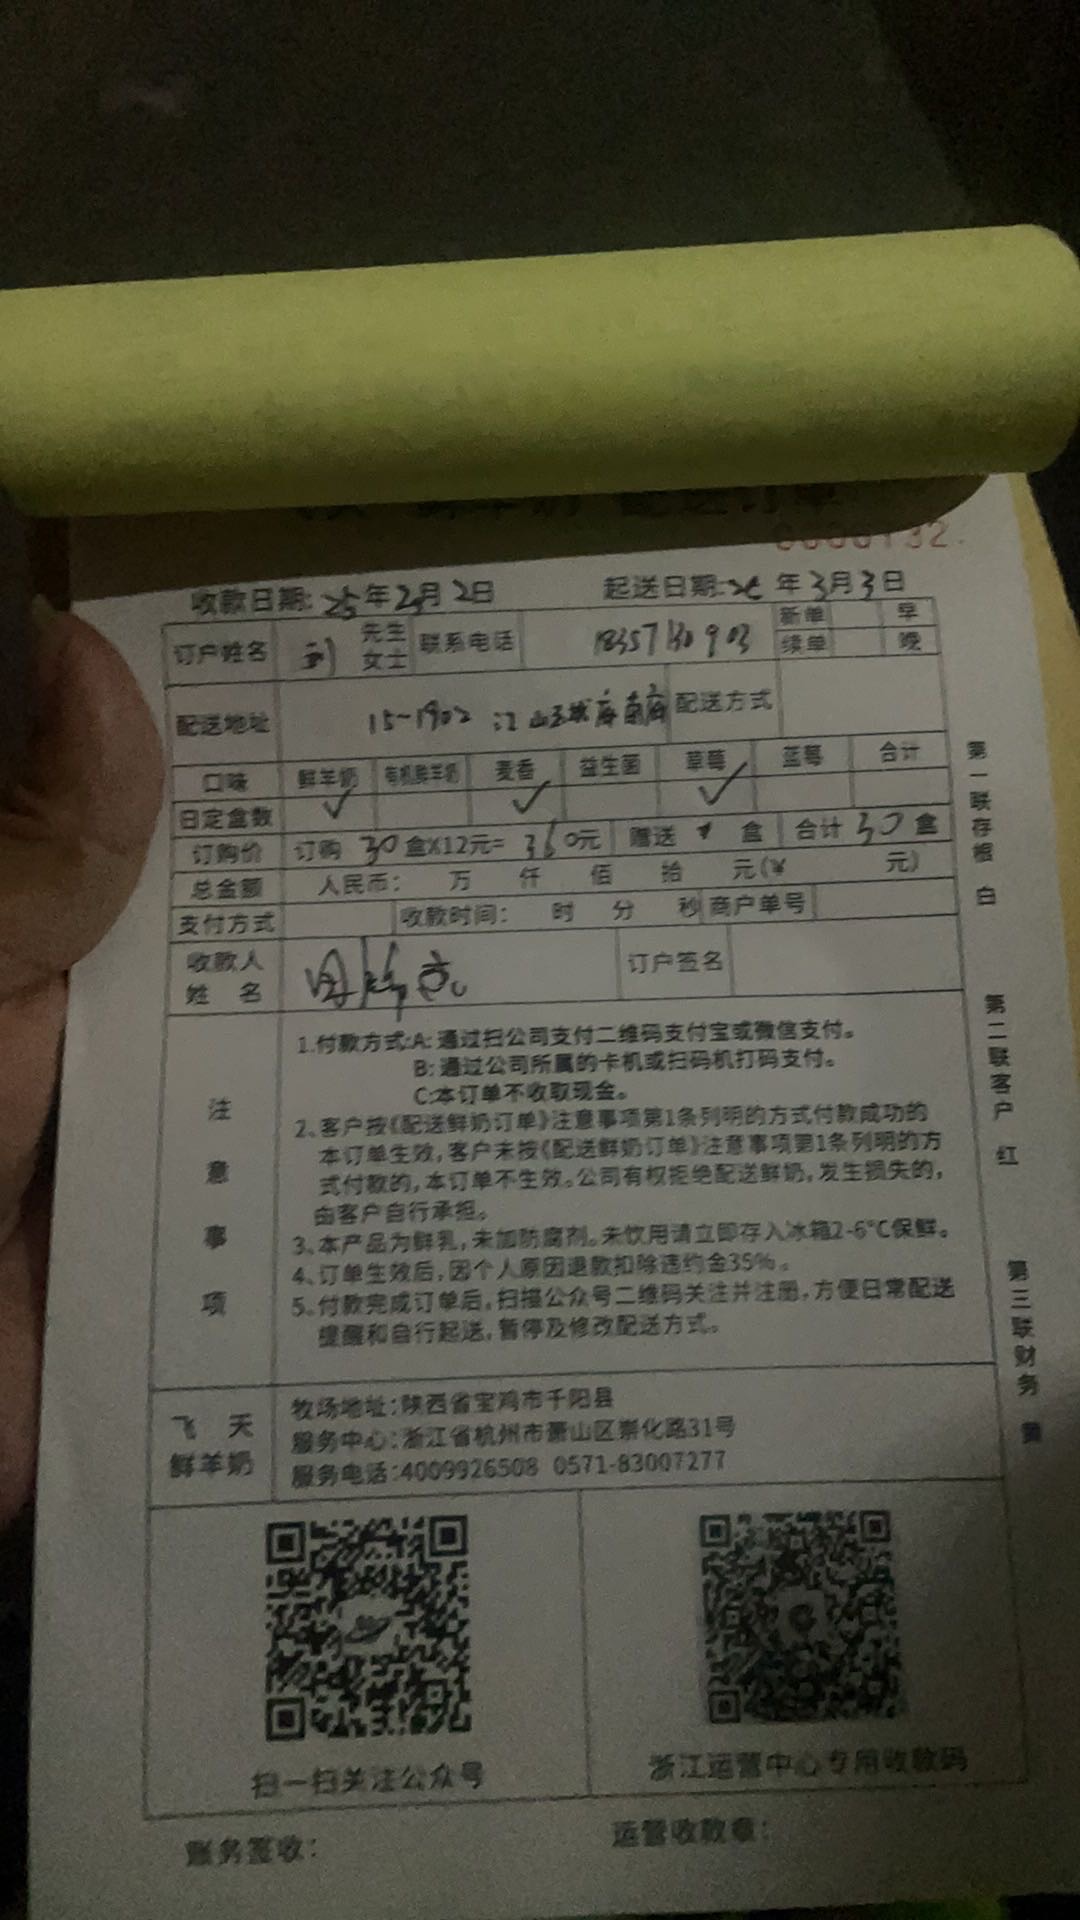 鲜羊奶 配送订单
收款日期: 25年2月2日 起送日期: 年3月3日
订户姓名 刘 先生 女士 联系电话 新单 早
续单 晚
配送地址 15-1902 江 配送方式
口味 鲜羊奶 有机鲜羊奶 麦香 益生菌 草莓 蓝莓 合计
日定盒数 ✓ ✓ ✓
订购价 订购 30 盒X12元= 360元 赠送 盒 合计 30 盒
总金额 人民币: 万 仟 佰 拾 元(¥ 元)
支付方式 收款时间: 时 分 秒 商户单号
收款人
姓 名 订户签名
注意事项
1.付款方式:A: 通过扫公司支付二维码支付宝或微信支付。
B: 通过公司所属的卡机或扫码机打码支付。
C:本订单不收取现金。
2、客户按《配送鲜奶订单》注意事项第1条列明的方式付款成功的
本订单生效, 客户未按《配送鲜奶订单》注意事项第1条列明的方
式付款的, 本订单不生效。公司有权拒绝配送鲜奶, 发生损失的,
由客户自行承担。
3、本产品为鲜乳, 未加防腐剂。未饮用请立即存入冰箱2-6°C保鲜。
4、订单生效后, 因个人原因退款扣除违约金35%。
5、付款完成订单后, 扫描公众号二维码关注并注册, 方便日常配送
提醒和自行起送, 暂停及修改配送方式。
飞 天
鲜羊奶
牧场地址:陕西省宝鸡市千阳县
服务中心:浙江省杭州市萧山区崇化路31号
服务电话:4009926508 0571-83007277
扫一扫关注公众号
浙江运营中心专用收款码
账务签收:
运营收款章:
第一联存根 白
第二联客户 红
第三联财务 黄